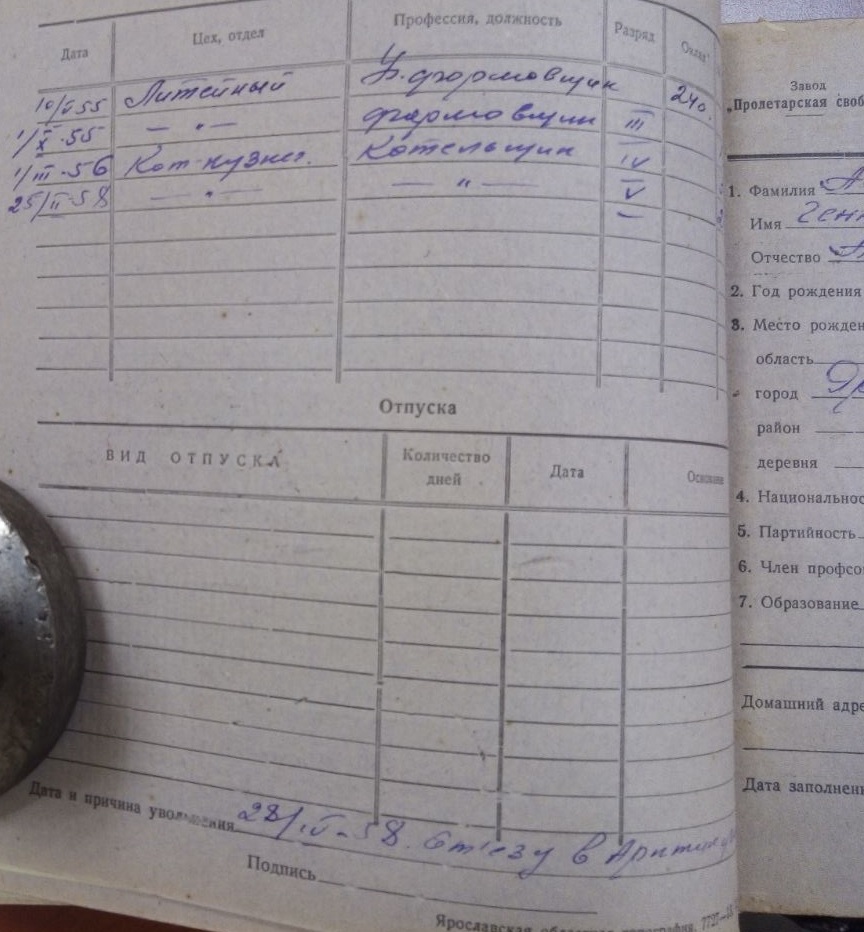 Дата Цех, отдел Профессия, должность Разряд Оклад
10/V 55 Литейный У. формовщик 240.
1/X-55 — " — формовщик III
1/III-56 Кот-кузнеч. Котельщик IV
25/II-58 — " — — " — V
Отпуска
ВИД ОТПУСКА Количество дней Дата Основание
Дата и причина увольнения 28/IV-58. Отъезд в
Подпись
Ярославская областная типография. 7727
Завод
„Пролетарская своб
1. Фамилия
Имя Генн
Отчество
2. Год рождения
3. Место рожден
область
город Яр
район
деревня
4. Национальнос
5. Партийность
6. Член профсо
7. Образование
Домашний адре
Дата заполнени